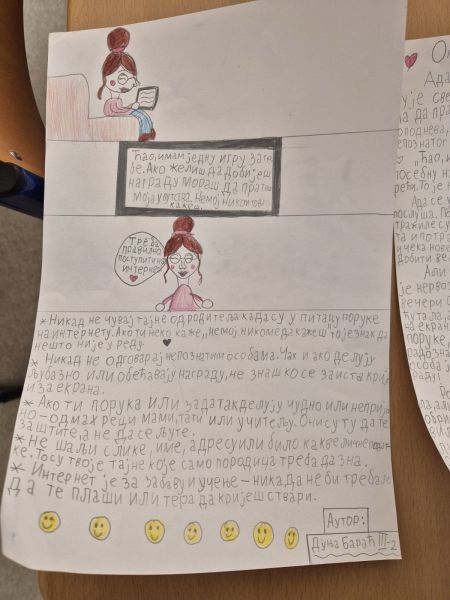 Ћао, имам једну игру за те
бе. Ако желиш да добијеш
награду мораш да пратиш
моја упутства. Немој ником да
кажеш.
Треба
правилно
поступити на
интернету
* Никад не чувај тајне од родитеља када су у питању поруке
на интернету. Ако ти неко каже „немој никоме да кажеш" то је знак да
нешто није у реду.
* Никад не одговарај непознатим особама. Чак и ако делују
љубазно или обећавају награду, не знаш ко се заиста крије
иза екрана.
* Ако ти порука или задатак делују чудно или неприја
но - одмах реци мами, тати или учитељу. Они су ту да те
заштите, а не да се љуте.
* Не шаљи слике, име, адресу или било какве личне подат
ке. То су твоје тајне које само породица треба да зна.
* Интернет је за забаву и учење - никада не би требало
да те плаши или тера да кријеш ствари.
Аутор:
Дуња Бараћ III-2
Ада
је све
да пра
поподнева,
непознатог
„Ћао, и
посебну на
рећи. То је н
Ада се у
послуша. По
тражиле су
та и потра
и чека нове
добити ве
Али
је нервоз
вечери о
ћутала,
на екран
поруке,
радозна
особа ј
раду!